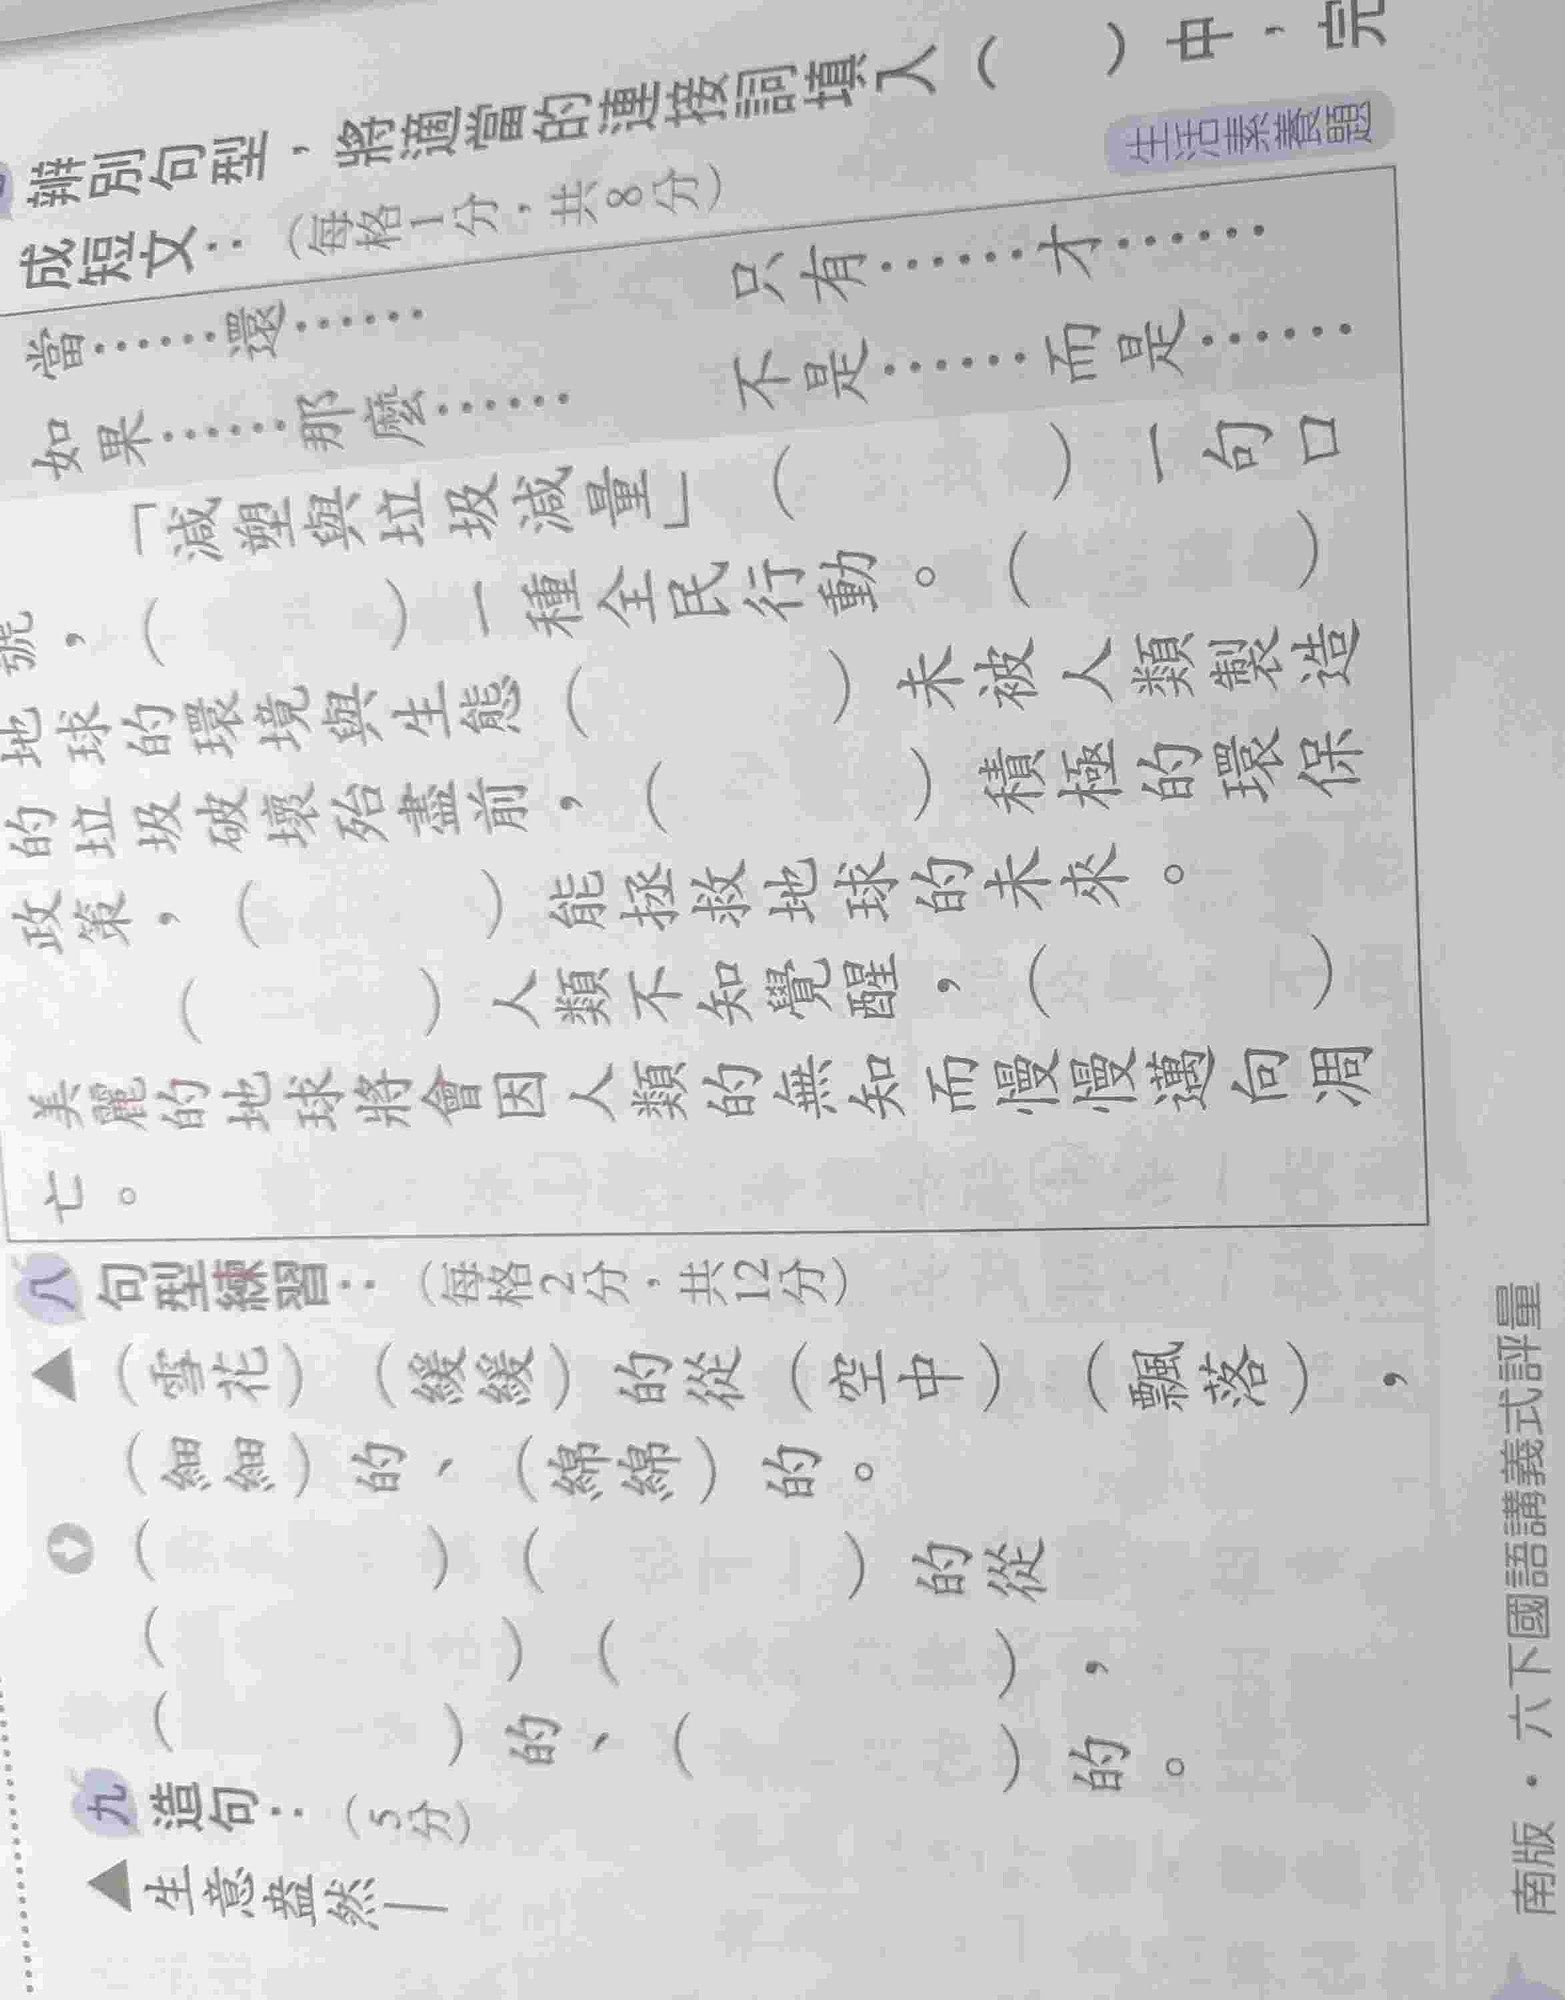 辨別句型，將適當的連接詞填入（　　）中，完
成短文：（每格1分，共8分）
生活素養題
當……還……　　只有……才……
如果……那麼……　　不是……而是……
「減塑與垃圾減量」（　　）一句口
號，（　　）一種全民行動。（　　）
地球的環境與生態（　　）未被人類製造
的垃圾破壞殆盡前，（　　）積極的環保
政策，（　　）能拯救地球的未來。
（　　）人類不知覺醒，（　　）
美麗的地球將會因人類的無知而慢慢邁向凋
亡。
八 句型練習：（每格2分，共12分）
▲（雪花）（緩緩）的從（空中）（飄落），
（細細）的、（綿綿）的。
（　　）（　　）的從
（　　）（　　），
（　　）的、（　　）的。
九 造句：（5分）
▲生意盎然—
南版・六下國語講義式評量